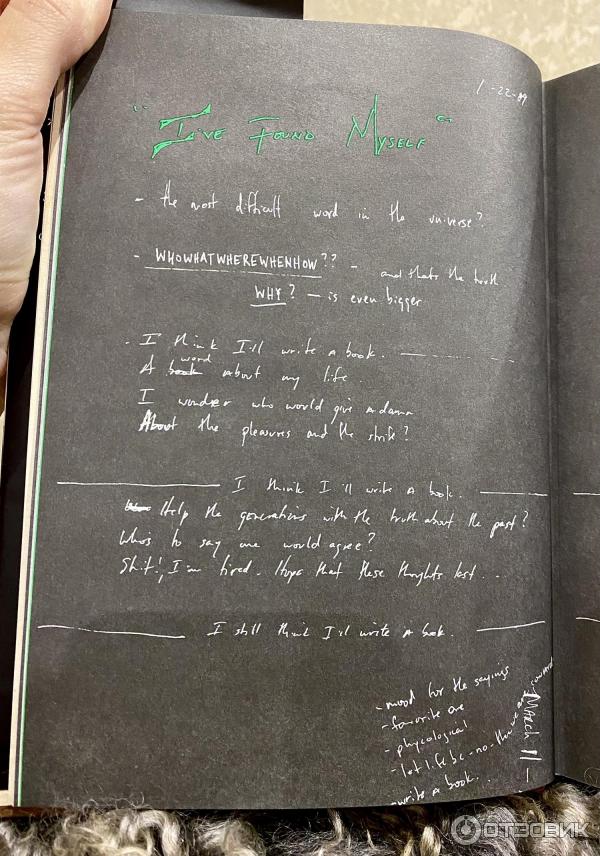 1-22-89
"I've Found Myself"
- the most difficult word in the universe?
- WHOWHATWHEREWHENHOW?? - and thats the truth
WHY? - is even bigger
- I think I'll write a book.
word
A book about my life
I wonder who would give a damn
About the pleasures and the strife?
I think I'll write a book.
Help the generations with the truth about the past?
Who's to say one would agree?
Shit!, I'm tired. Hope that these thoughts last...
I still think I'll write a book.
- mood for the sayings
- favorite are
- phycological
- let life be - no
- write a book.
MARCH 11 -
ОТЗОВИК